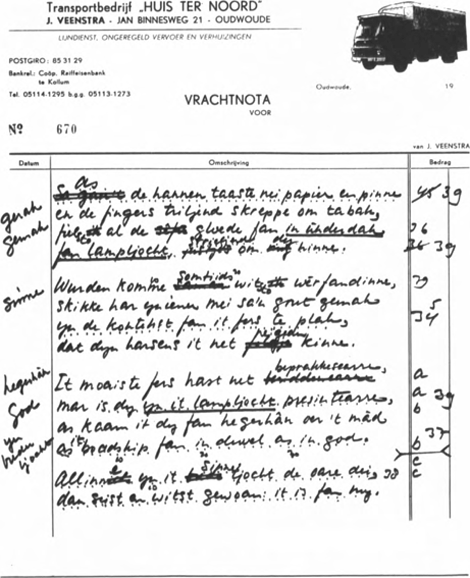 Transportbedrijf „HUIS TER NOORD"
J. VEENSTRA - JAN BINNESWEG 21 - OUDWOUDE
LIJNDIENST, ONGEREGELD VERVOER EN VERHUIZINGEN
POSTGIRO: 85 31 29
Bankrel.: Coöp. Raiffeisenbank
te Kollum
Tel. 05114-1295 b.g.g. 05113-1273
Oudwoude, 19
VRACHTNOTA
VOOR
Nº 670
van J. VEENSTRA
Datum Omschrijving Bedrag
as
de hannen taaste nei papier en pinne 45 39
en de fingers triljend skreppe om tabak,
gemak al de gloede fan in ûnderdak 36
fan lampljocht, om hinne. 39
Somtiids
sinne Wurden komme wer fandinne, 39
skikke har yn ienen mei sa'n grut gemak
yn de kontekst fan it fers te plak, 34 5
dat dyn harsens it net kinne.
beprakkesearre, a
It moaiste fers hast net
God mar is dy yn it lampljocht presintearre, a 39
as kaam it dy fan hegerhân oer 't mad b
as it boadskip fan in duvel as in god. b 37
Allinne yn it ljocht de oare dei, 38 c
dan seist en witst gewoan: it is fan my. c